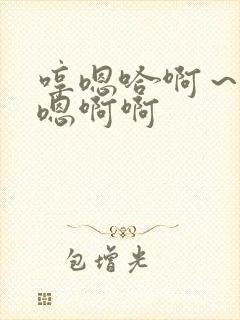 哼嗯哈啊～
嗯啊啊
包增光